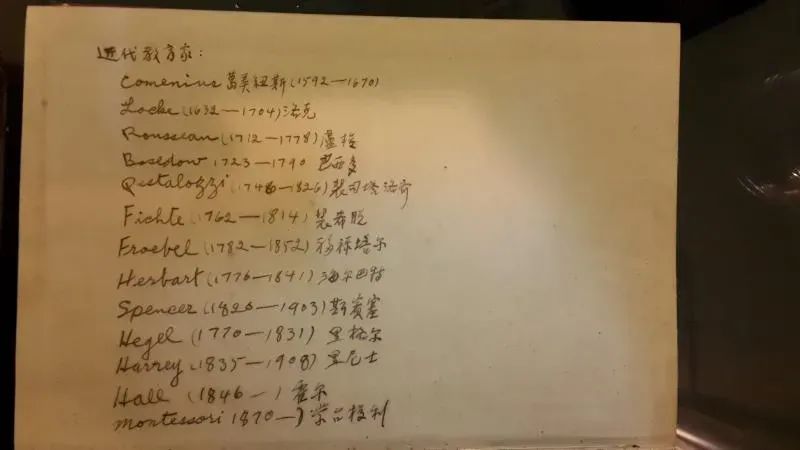 近代教育家：
Comenius 葛美纽斯(1592—1670)
Locke (1632—1704) 洛克
Rousseau (1712—1778) 盧梭
Basedow 1723—1790 巴西多
Pestalozzi (1746—1826) 裴司塔洛齐
Fichte (1762—1814)
Froebel (1782—1852) 福禄塔尔
Herbart (1776—1841) 海尔巴特
Spencer (1820—1903) 斯賓塞
Hegel (1770—1831) 黑格尔
Harrey (1835—1908) 黑尼士
Hall (1846— ) 霍尔
montessori 1870—) 蒙台梭利